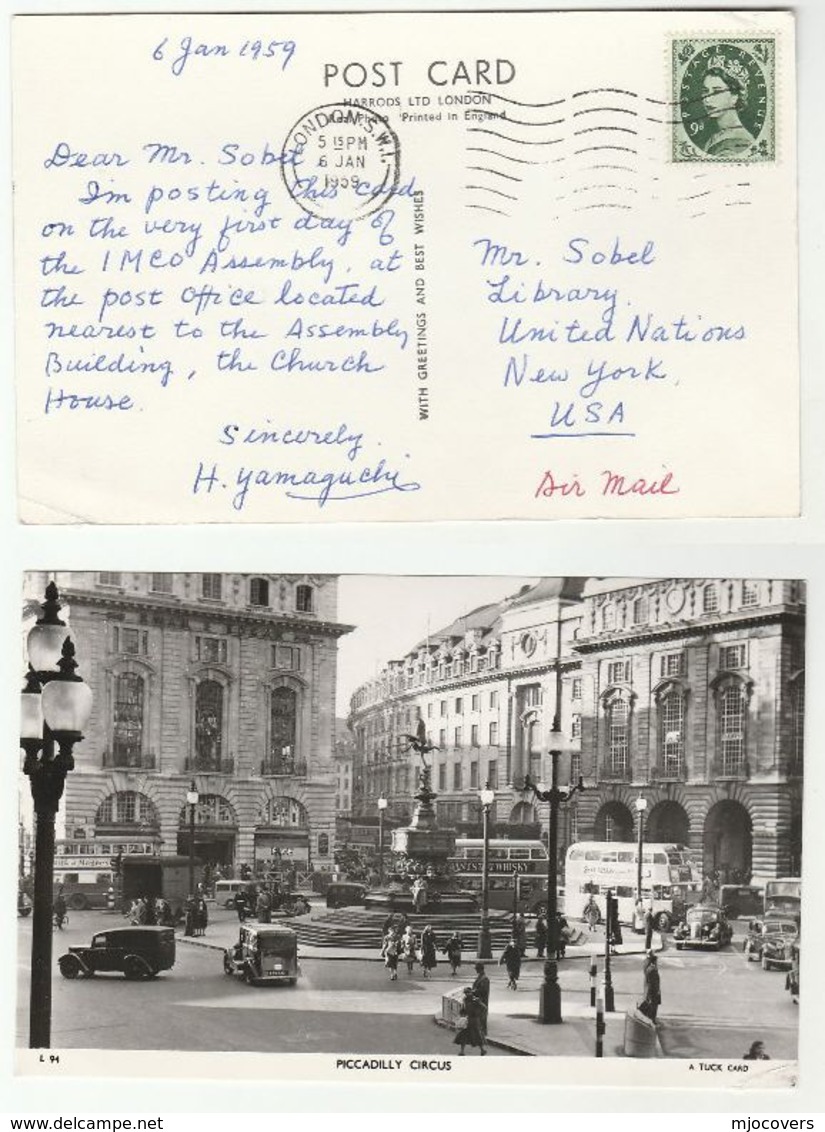 6 Jan 1959
POST CARD
HARRODS LTD LONDON
Real Photo Printed in England
LONDON. S.W.1.
5 15 PM
6 JAN
1959
POSTAGE REVENUE
9d
Dear Mr. Sobel
I'm posting this card
on the very first day of
the IMCO Assembly, at
the post office located
nearest to the Assembly
Building, the Church
House.
Sincerely,
H. Yamaguchi
WITH GREETINGS AND BEST WISHES
Mr. Sobel
Library,
United Nations
New York,
USA
Air Mail
WHISKY
L 94
PICCADILLY CIRCUS
A TUCK CARD
mjocovers